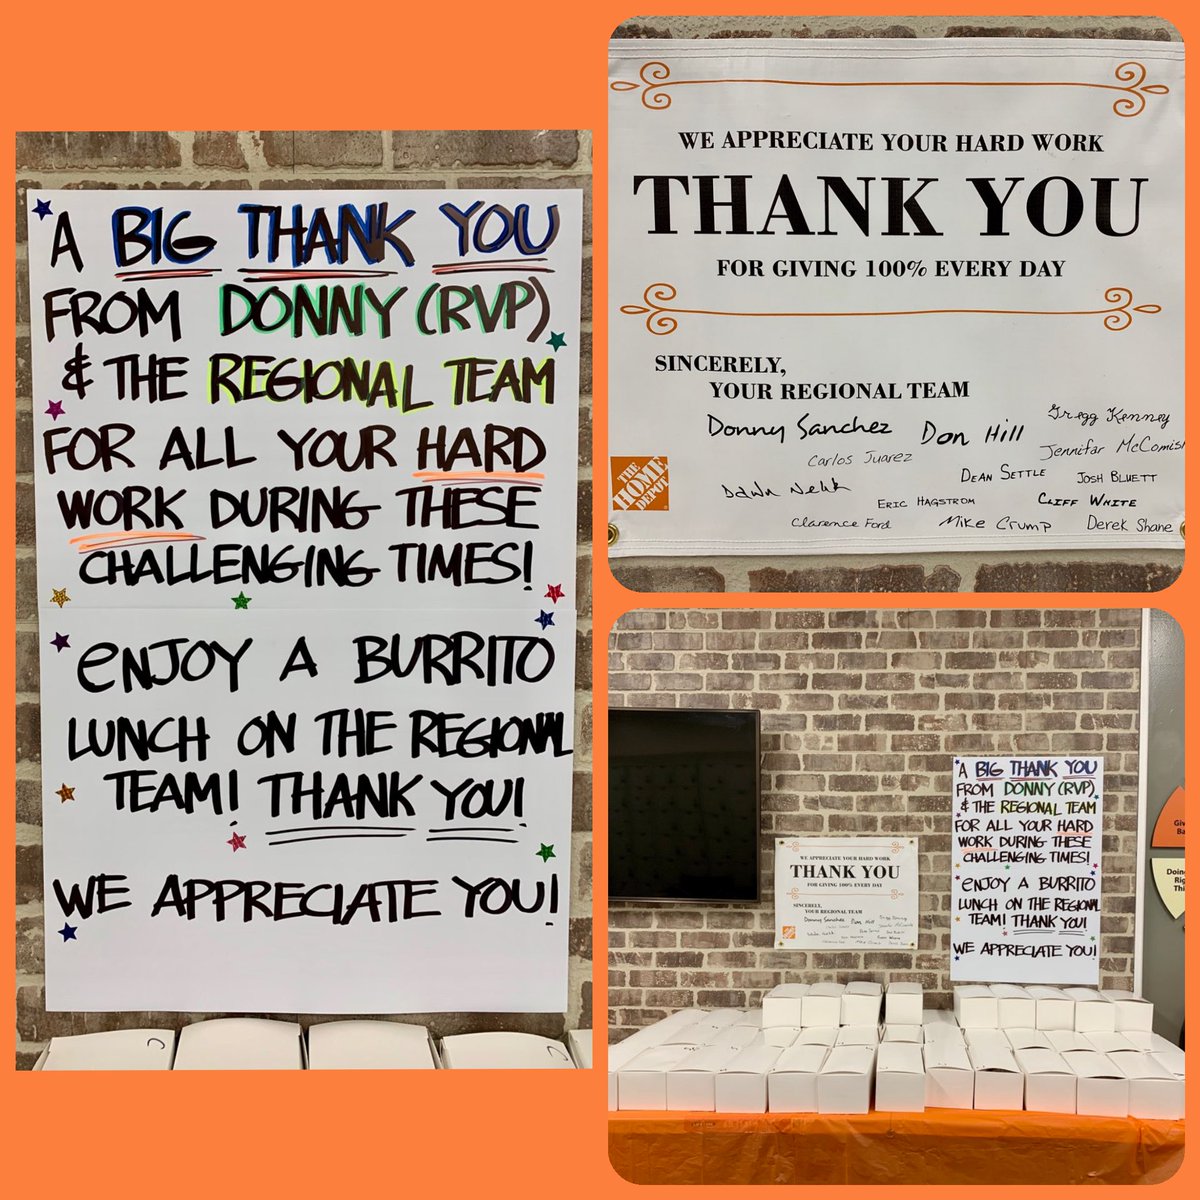 A BIG THANK YOU
FROM DONNY (RVP)
& THE REGIONAL TEAM
FOR ALL YOUR HARD
WORK DURING THESE
CHALLENGING TIMES!
ENJOY A BURRITO
LUNCH ON THE REGIONAL
TEAM! THANK YOU!
WE APPRECIATE YOU!
WE APPRECIATE YOUR HARD WORK
THANK YOU
FOR GIVING 100% EVERY DAY
SINCERELY,
YOUR REGIONAL TEAM
Donny Sanchez Don Hill Gregg Kenney
Carlos Juarez Jennifar McComish
THE HOME DEPOT
Dawn DEAN SETTLE JOSH BLUETT
ERIC HAGSTROM CLIFF WHITE
Clarence Ford Mike Crump Derek Shane
A BIG THANK YOU
FROM DONNY (RVP)
& THE REGIONAL TEAM
FOR ALL YOUR HARD
WORK DURING THESE
CHALLENGING TIMES!
ENJOY A BURRITO
LUNCH ON THE REGIONAL
TEAM! THANK YOU!
WE APPRECIATE YOU!
WE APPRECIATE YOUR HARD WORK
THANK YOU
FOR GIVING 100% EVERY DAY
SINCERELY,
YOUR REGIONAL TEAM
Donny Sanchez Don Hill Gregg Kenney
Doing
Rig
Thi